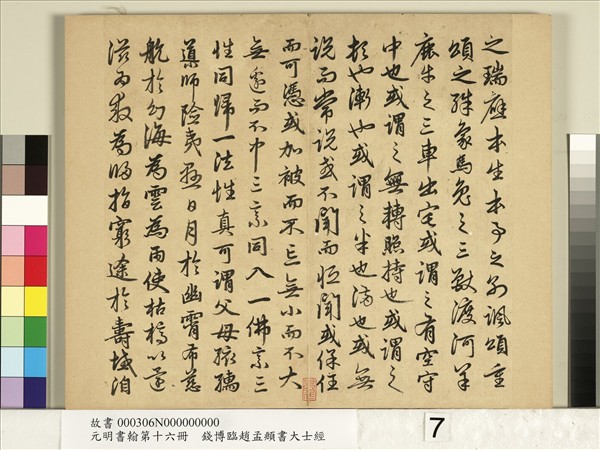 之瑞應本生本事之別諷頌重
頌之殊象馬兔之三獸渡河羊
鹿牛之三車出宅或謂之有空守
中也或謂之無轉照持也或謂之
頓也漸也或謂之半也滿也或無
說而常說或不聞而恒聞或保任
而可憑或加被而不忘無小而不大
無邊而不中三乘同入一佛乘三
性同歸一法性真可謂父母孩孺
導師險夷懸日月於幽霄布慈
航於幻海為雲為雨使枯槁以還
滋而救為歸指窮途於壽域洎
故書 000306N000000000
元明書翰第十六冊 錢博臨趙孟頫書大士經
7